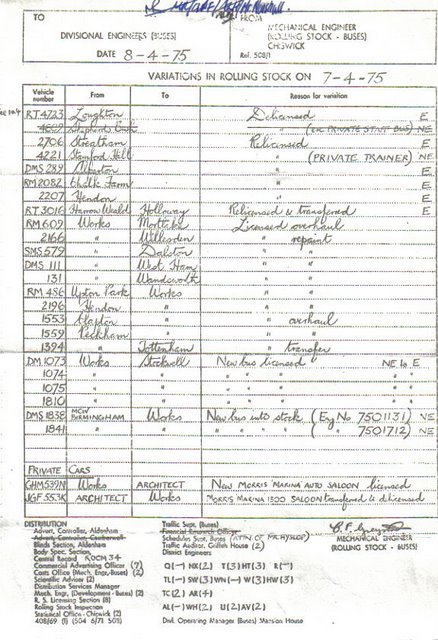 TO
FROM
DIVISIONAL ENGINEERS (BUSES)
MECHANICAL ENGINEER
(ROLLING STOCK - BUSES)
CHISWICK
DATE 8-4-75
Ref. 508/1
VARIATIONS IN ROLLING STOCK ON 7-4-75
Vehicle number From To Reason for variation
RT4723 Loughton Delicensed E
Shepherds Bush " (ex PRIVATE STAFF BUS) NE
2706 Streatham Relicensed E
4221 Stamford Hill " (PRIVATE TRAINER) NE
DMS 289 Alperton " E
RM2082 Chalk Farm " E
2207 Hendon " E
RT3016 Harrow Weald Holloway Relicensed & transferred E
RM609 Works Mortlake Licensed overhaul
2166 " Willesden " repaint
SMS579 " Dalston " "
DMS 111 " West Ham " "
131 " Wandsworth " "
RM 486 Upton Park Works " "
2196 Hendon " " "
1553 Clapton " " overhaul
1559 Peckham " " "
1394 " Tottenham " transfer
DM 1073 Works Stockwell New bus licensed NE to E
1074 " " " " " " " "
1075 " " " " " " " "
1810 " " " " " " " "
DMS 1838 MCW BIRMINGHAM Works New bus into stock (Eng No 7501131) NE
1841 " " " " " ( " " 7501712) NE
PRIVATE CARS
GHM539N Works ARCHITECT NEW MORRIS MARINA AUTO SALOON licensed
JGF553K ARCHITECT Works MORRIS MARINA 1300 SALOON transferred & delicensed
DISTRIBUTION
Advert. Controller, Aldenham
Advert. Controller, Camberwell
Blinds Section, Aldenham
Body Spec. Section,
Central Record ROOM 34
Commercial Advertising Officer (7)
Costs Office (Mech. Engr.-Buses) (2)
Scientific Adviser (2)
Distribution Services Manager
Mech. Engr. (Development - Buses) (2)
R. S. Licensing Section (8)
Rolling Stock Inspection
Statistical Office - Chiswick (2)
408/69 (1) (504 6/71 508)
Traffic Supt. (Buses)
Financial Research Officer
Schedules Supt. (Buses) (ATTN. OF MR HYSLOP)
Traffic Auditor, Griffith House (2)
District Engineers
Q(-) HX(2) T(3) HT(3) R(-)
TL(-) SW(3) WN(-) W(3) HW(3)
TC(2) AR(4)
AL(-) WH(2) U(2) AV(2)
Divl. Operating Manager (Buses) Mansion House
MECHANICAL ENGINEER
(ROLLING STOCK - BUSES)